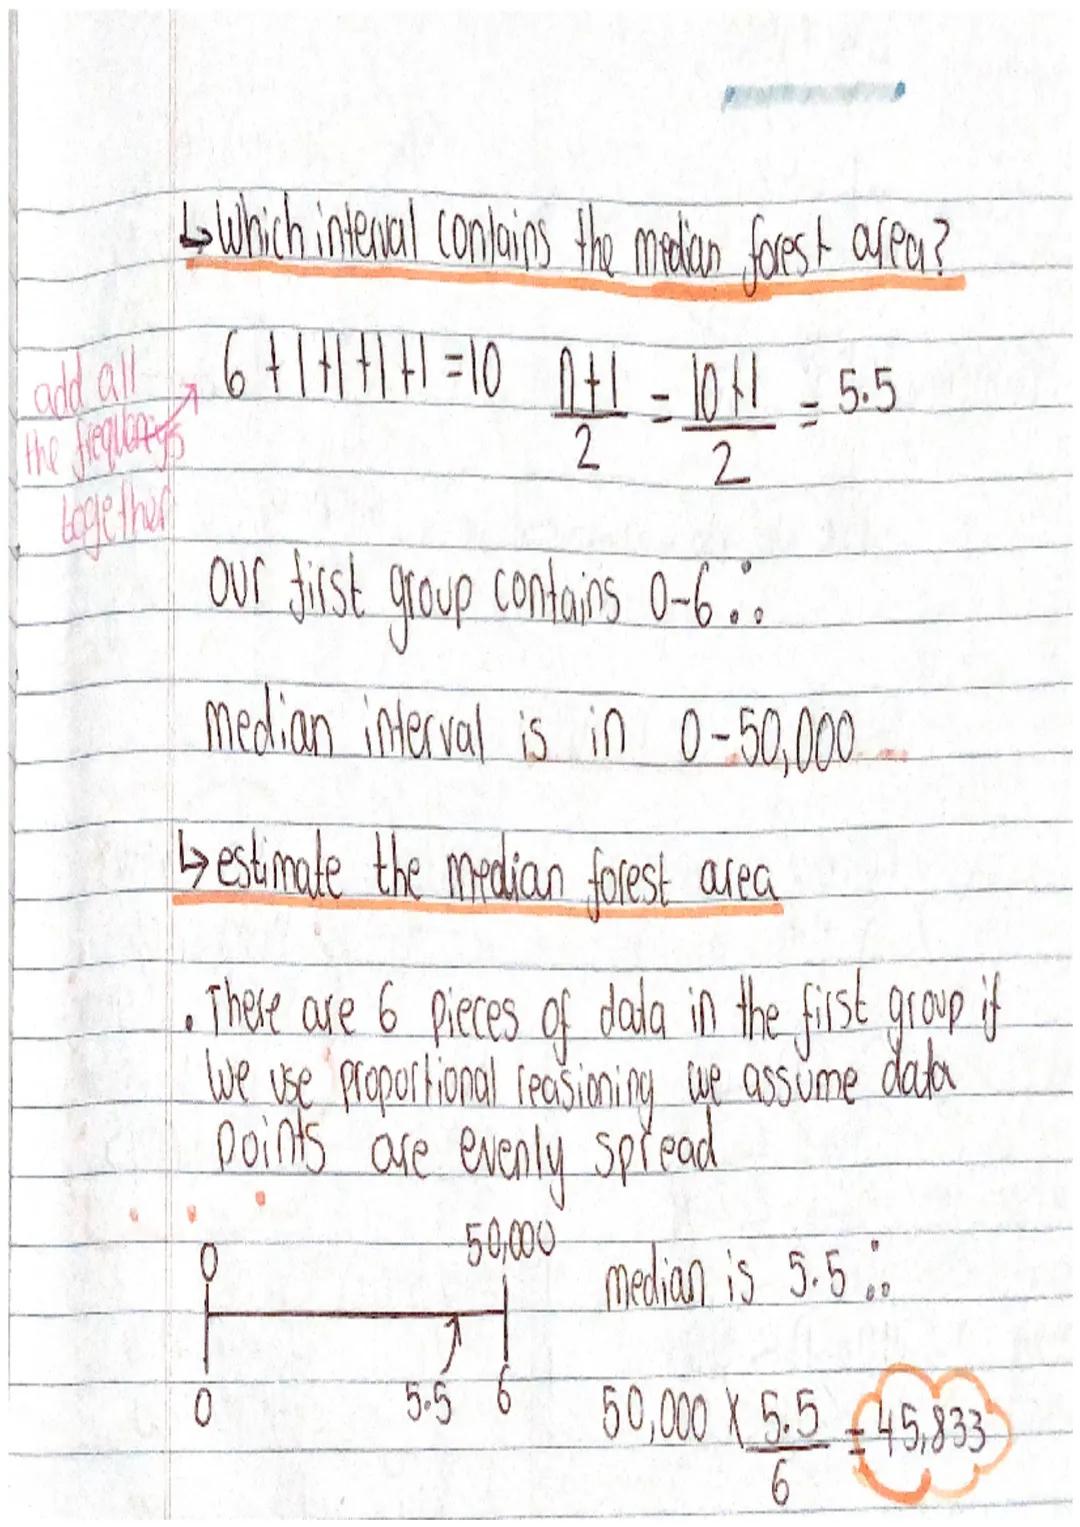 ↳ Which interval contains the median forest area?
add all
the frequencys
together
6 + 1 + 1 + 1 + 1 = 10 n+1/2 = 10+1/2 = 5.5
our first group contains 0-6 ∴
median interval is in 0-50,000
↳ estimate the median forest area
• There are 6 pieces of data in the first group if
we use proportional reasioning we assume data
points are evenly spread
0 50,000
median is 5.5 ∴
0 5.5 6
50,000 × 5.5/6 = 45,833